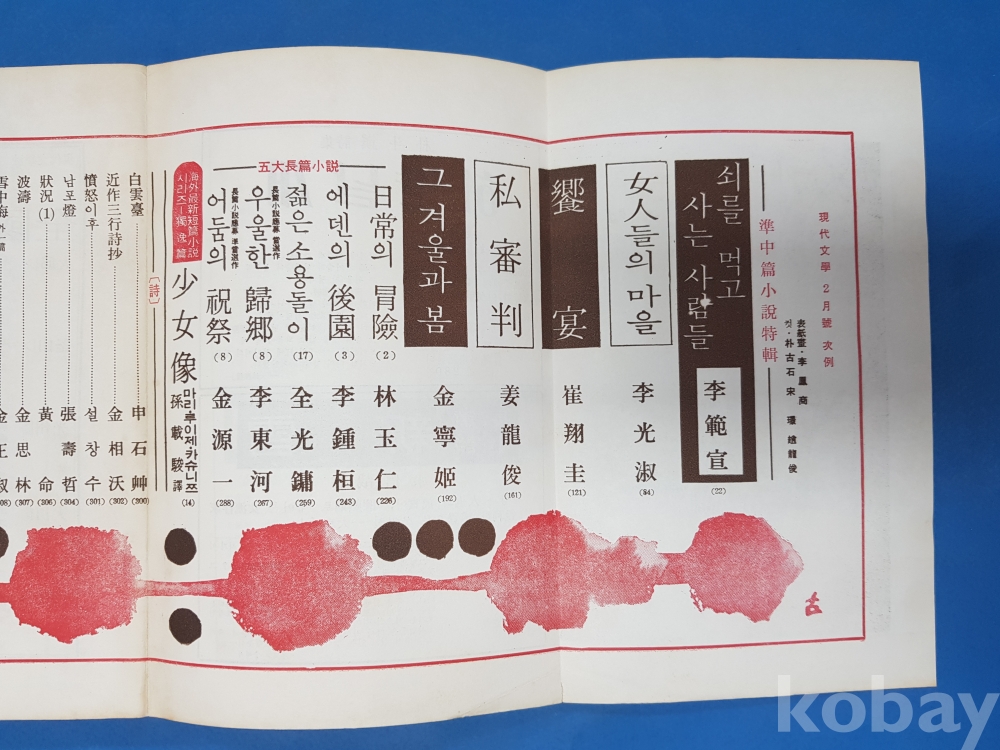 現代文學 2月號 次例
表紙畫·李鳳商
컷·朴古石 宋
準中篇小說特輯
쇠를 먹고
사는 사람들
李範宣
(22)
女人들의 마을
李光淑
(84)
饗宴
崔翔圭
(121)
私審判
姜龍俊
(161)
그 겨울과 봄
金寧姬
(192)
五大長篇小說
日常의 冒險 (2)
林玉仁
(226)
에덴의 後園 (3)
李鍾桓
(243)
젊은 소용돌이 (17)
全光鏞
(259)
長篇小說應募 當選作
우울한 歸鄕 (8)
李東河
(267)
長篇小說應募 準當選作
어둠의 祝祭 (8)
金源一
(288)
海外最新短篇小說
시리즈—獨逸篇
少女像
마리 루이제 카슈니쯔
孫載駿 譯
(14)
[詩]
白雲臺 申石艸 (300)
近作三行詩抄 金相沃 (302)
憤怒이후 설창수 (301)
남포燈 張壽哲 (304)
狀況(1) 黃命 (306)
波濤 金思林 (307)
雪中梅 外一篇
古
kobay